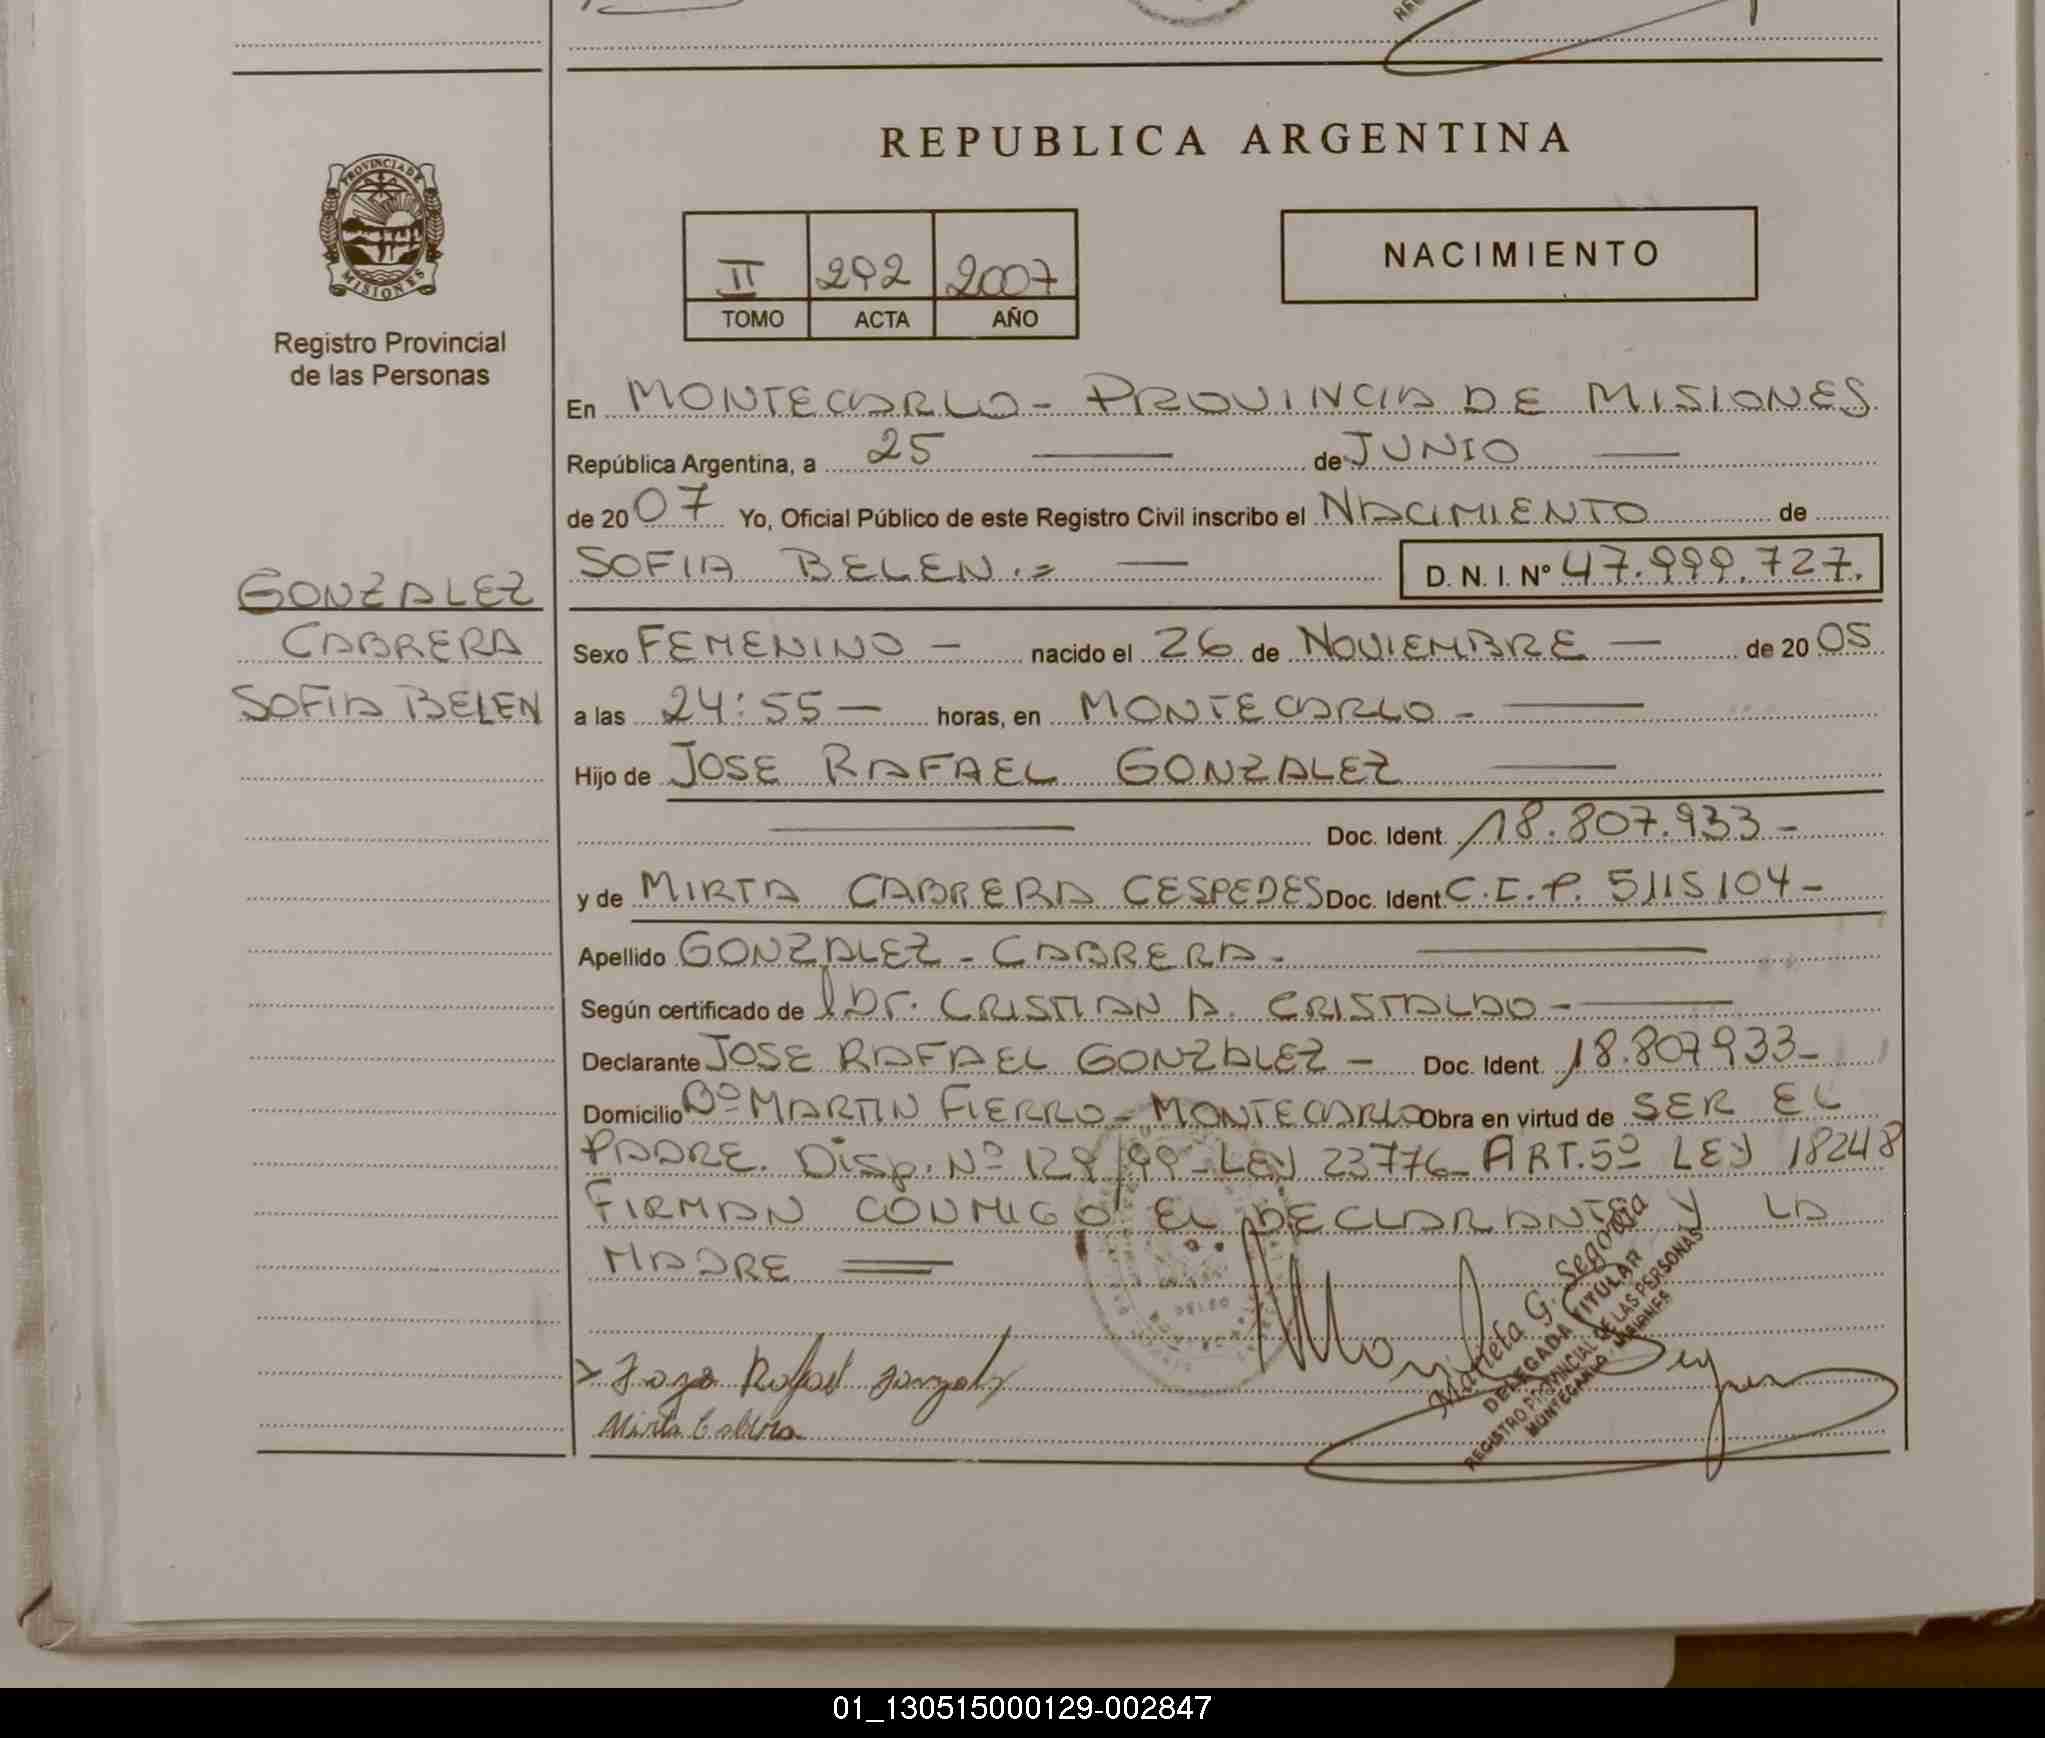 REPUBLICA ARGENTINA
PROVINCIA DE MISIONES
Registro Provincial
de las Personas
II 292 2007
TOMO ACTA AÑO
NACIMIENTO
En MONTECARLO - PROVINCIA DE MISIONES
República Argentina, a 25 — de JUNIO —
de 2007 Yo, Oficial Público de este Registro Civil inscribo el NACIMIENTO de
SOFIA BELEN.= — D. N. I. Nº 47.999.727.
GONZALEZ
CABRERA
SOFIA BELEN
Sexo FEMENINO — nacido el 26 de NOVIEMBRE — de 2005
a las 24:55 — horas, en MONTECARLO - —
Hijo de JOSE RAFAEL GONZALEZ —
— Doc. Ident. 18.807.933 -
y de MIRTA CABRERA CESPEDES Doc. Ident. C.I.P. 5115104 -
Apellido GONZALEZ - CABRERA - —
Según certificado de Dr. CRISTIAN A. CRISTALDO - —
Declarante JOSE RAFAEL GONZALEZ - Doc. Ident. 18.807933 -
Domicilio Bº MARTIN FIERRO - MONTECARLO Obra en virtud de SER EL
PADRE. Disp. Nº 129/99 - LEY 23776 - ART. 5º LEY 18248
FIRMAN CONMIGO EL DECLARANTE Y LA
MADRE =
Jose Rafael Gonzalez
Mirta Cabrera
Marieta G. Segovia
DELEGADA TITULAR
REGISTRO PROVINCIAL DE LAS PERSONAS
MONTECARLO - MISIONES
01_130515000129-002847